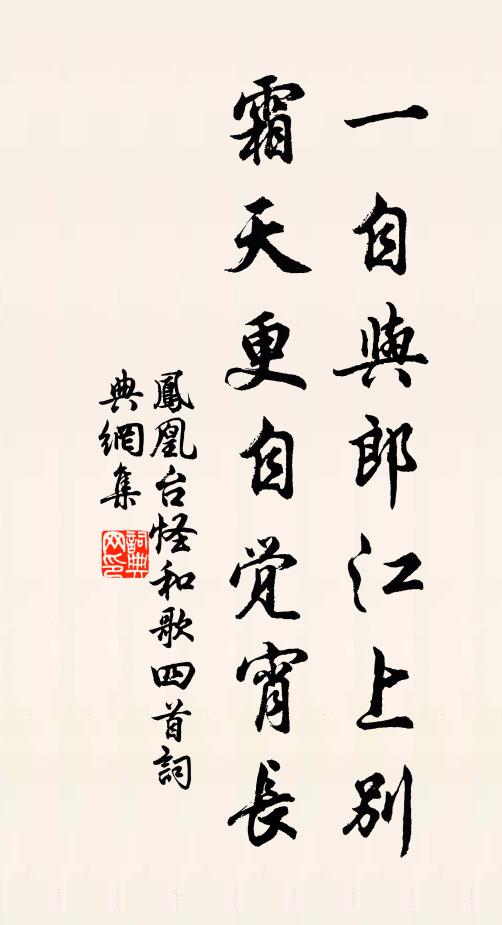 一自與郎江上別
霜天更自觉宵長
鳳凰台怪和歌四首詞
典網集
詞典
网印